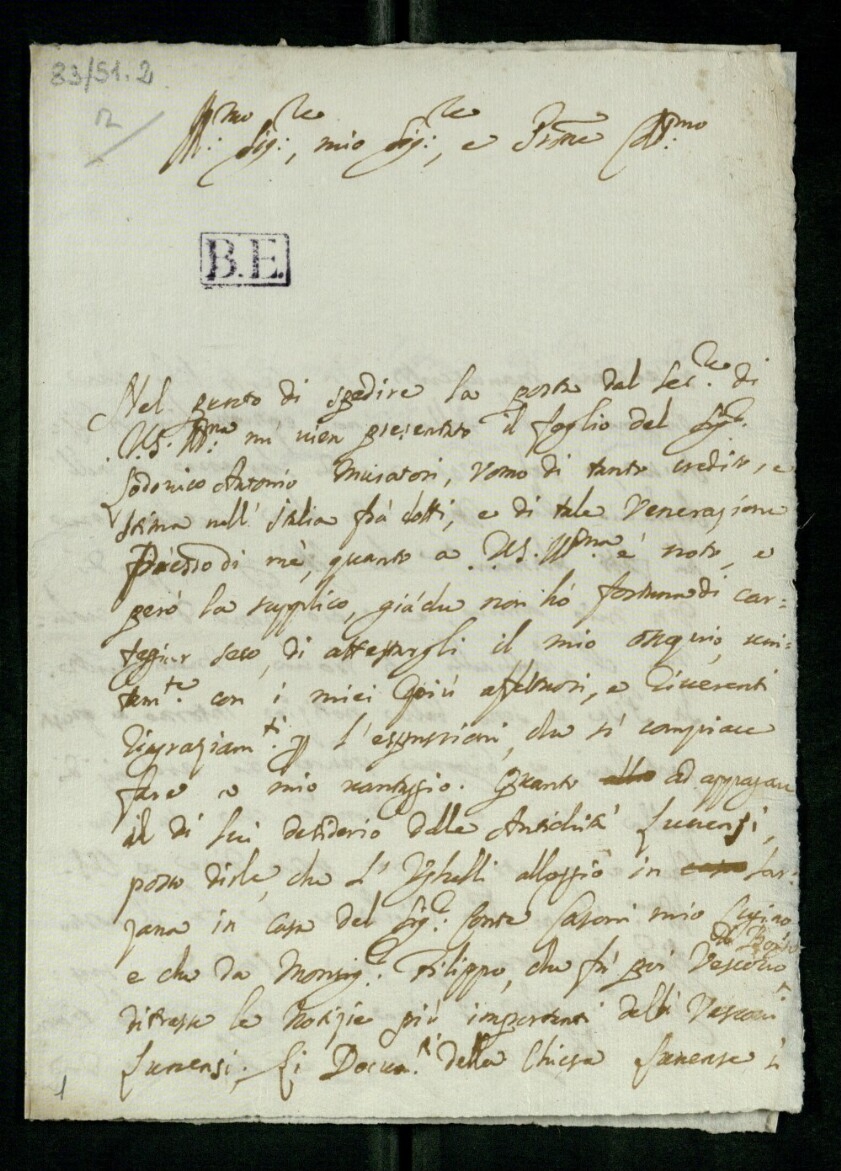 83/51.2
2
Ill:mo Sig:re, mio Sig:re, e Prone Col:mo
B.E.
Nel punto di spedire la posta del Ser:re di
V.S. Ill:ma mi vien presentato il foglio del Sig:r
Lodovico Antonio Muratori, Vomo di tanto credito, e
stima nell' Italia frà dotti, e di tale Venerazione
presso di mè, quanto a V.S. Ill:ma è noto, e
però la supplico, giàche non hò fortuna di car-
teggiar seco, di attestargli il mio ossequio, uni-
tam:te con i miei più affettuosi, e riverenti
ringraziam:ti p l'espressioni, che si compiace
fare a mio vantaggio. Quanto ad appagare
il di lui desiderio delle Antichità Lunensi,
posso dirle, che l'Ughelli alloggiò in Sar-
zana in casa del Sig:r Conte Casoni mio Cugino
e che da Monsig:r Filippo, che fù poi Vescovo di Borgo
ritrasse le notizie più importanti delli Vescovi
Lunensi. Li Docum:ti della Chiesa Lunense si
1